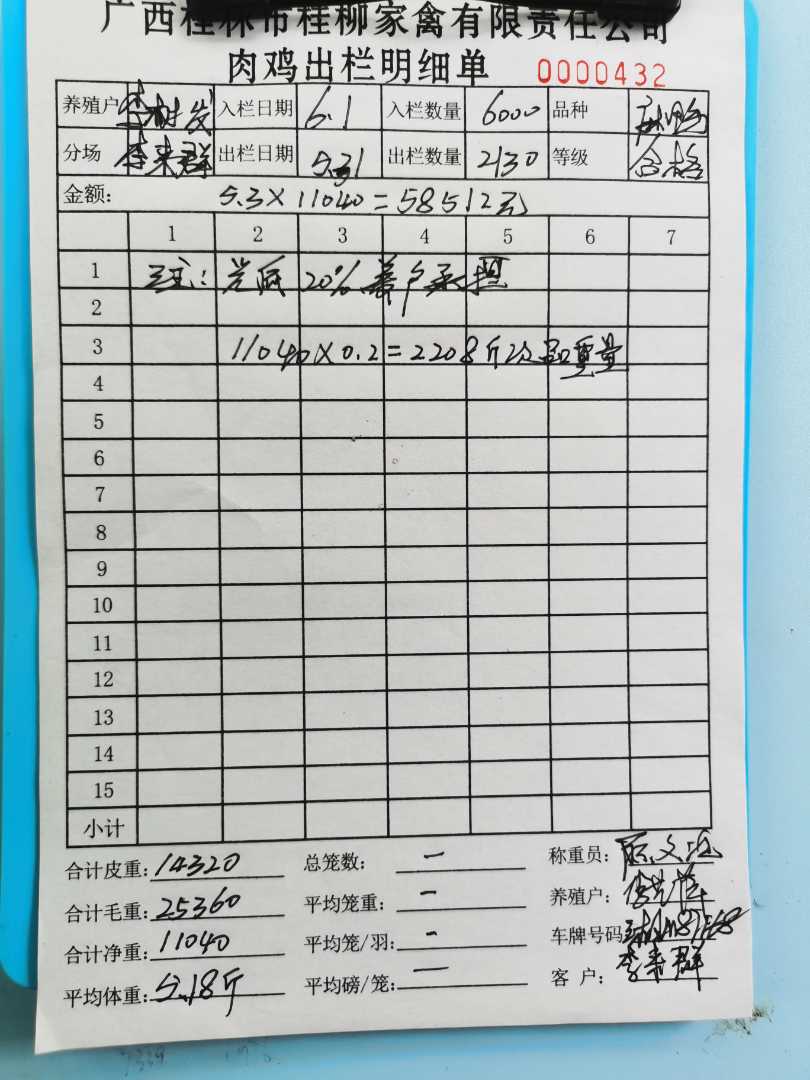 广西桂林市桂柳家禽有限责任公司
肉鸡出栏明细单 0000432
养殖户 李树发 入栏日期 6.1 入栏数量 6000 品种 麻鸡
分场 李来群 出栏日期 5.31 出栏数量 2130 等级 合格
金额: 5.3×11040=58512元
1 2 3 4 5 6 7
1 注: 20%养户承担
2
3 11040×0.2=2208斤次品重量
4
5
6
7
8
9
10
11
12
13
14
15
小计
合计皮重: 14320 总笼数: - 称重员:
合计毛重: 25360 平均笼重: - 养殖户:
合计净重: 11040 平均笼/羽: - 车牌号码
平均体重: 5.18斤 平均磅/笼: - 客户: 李来群